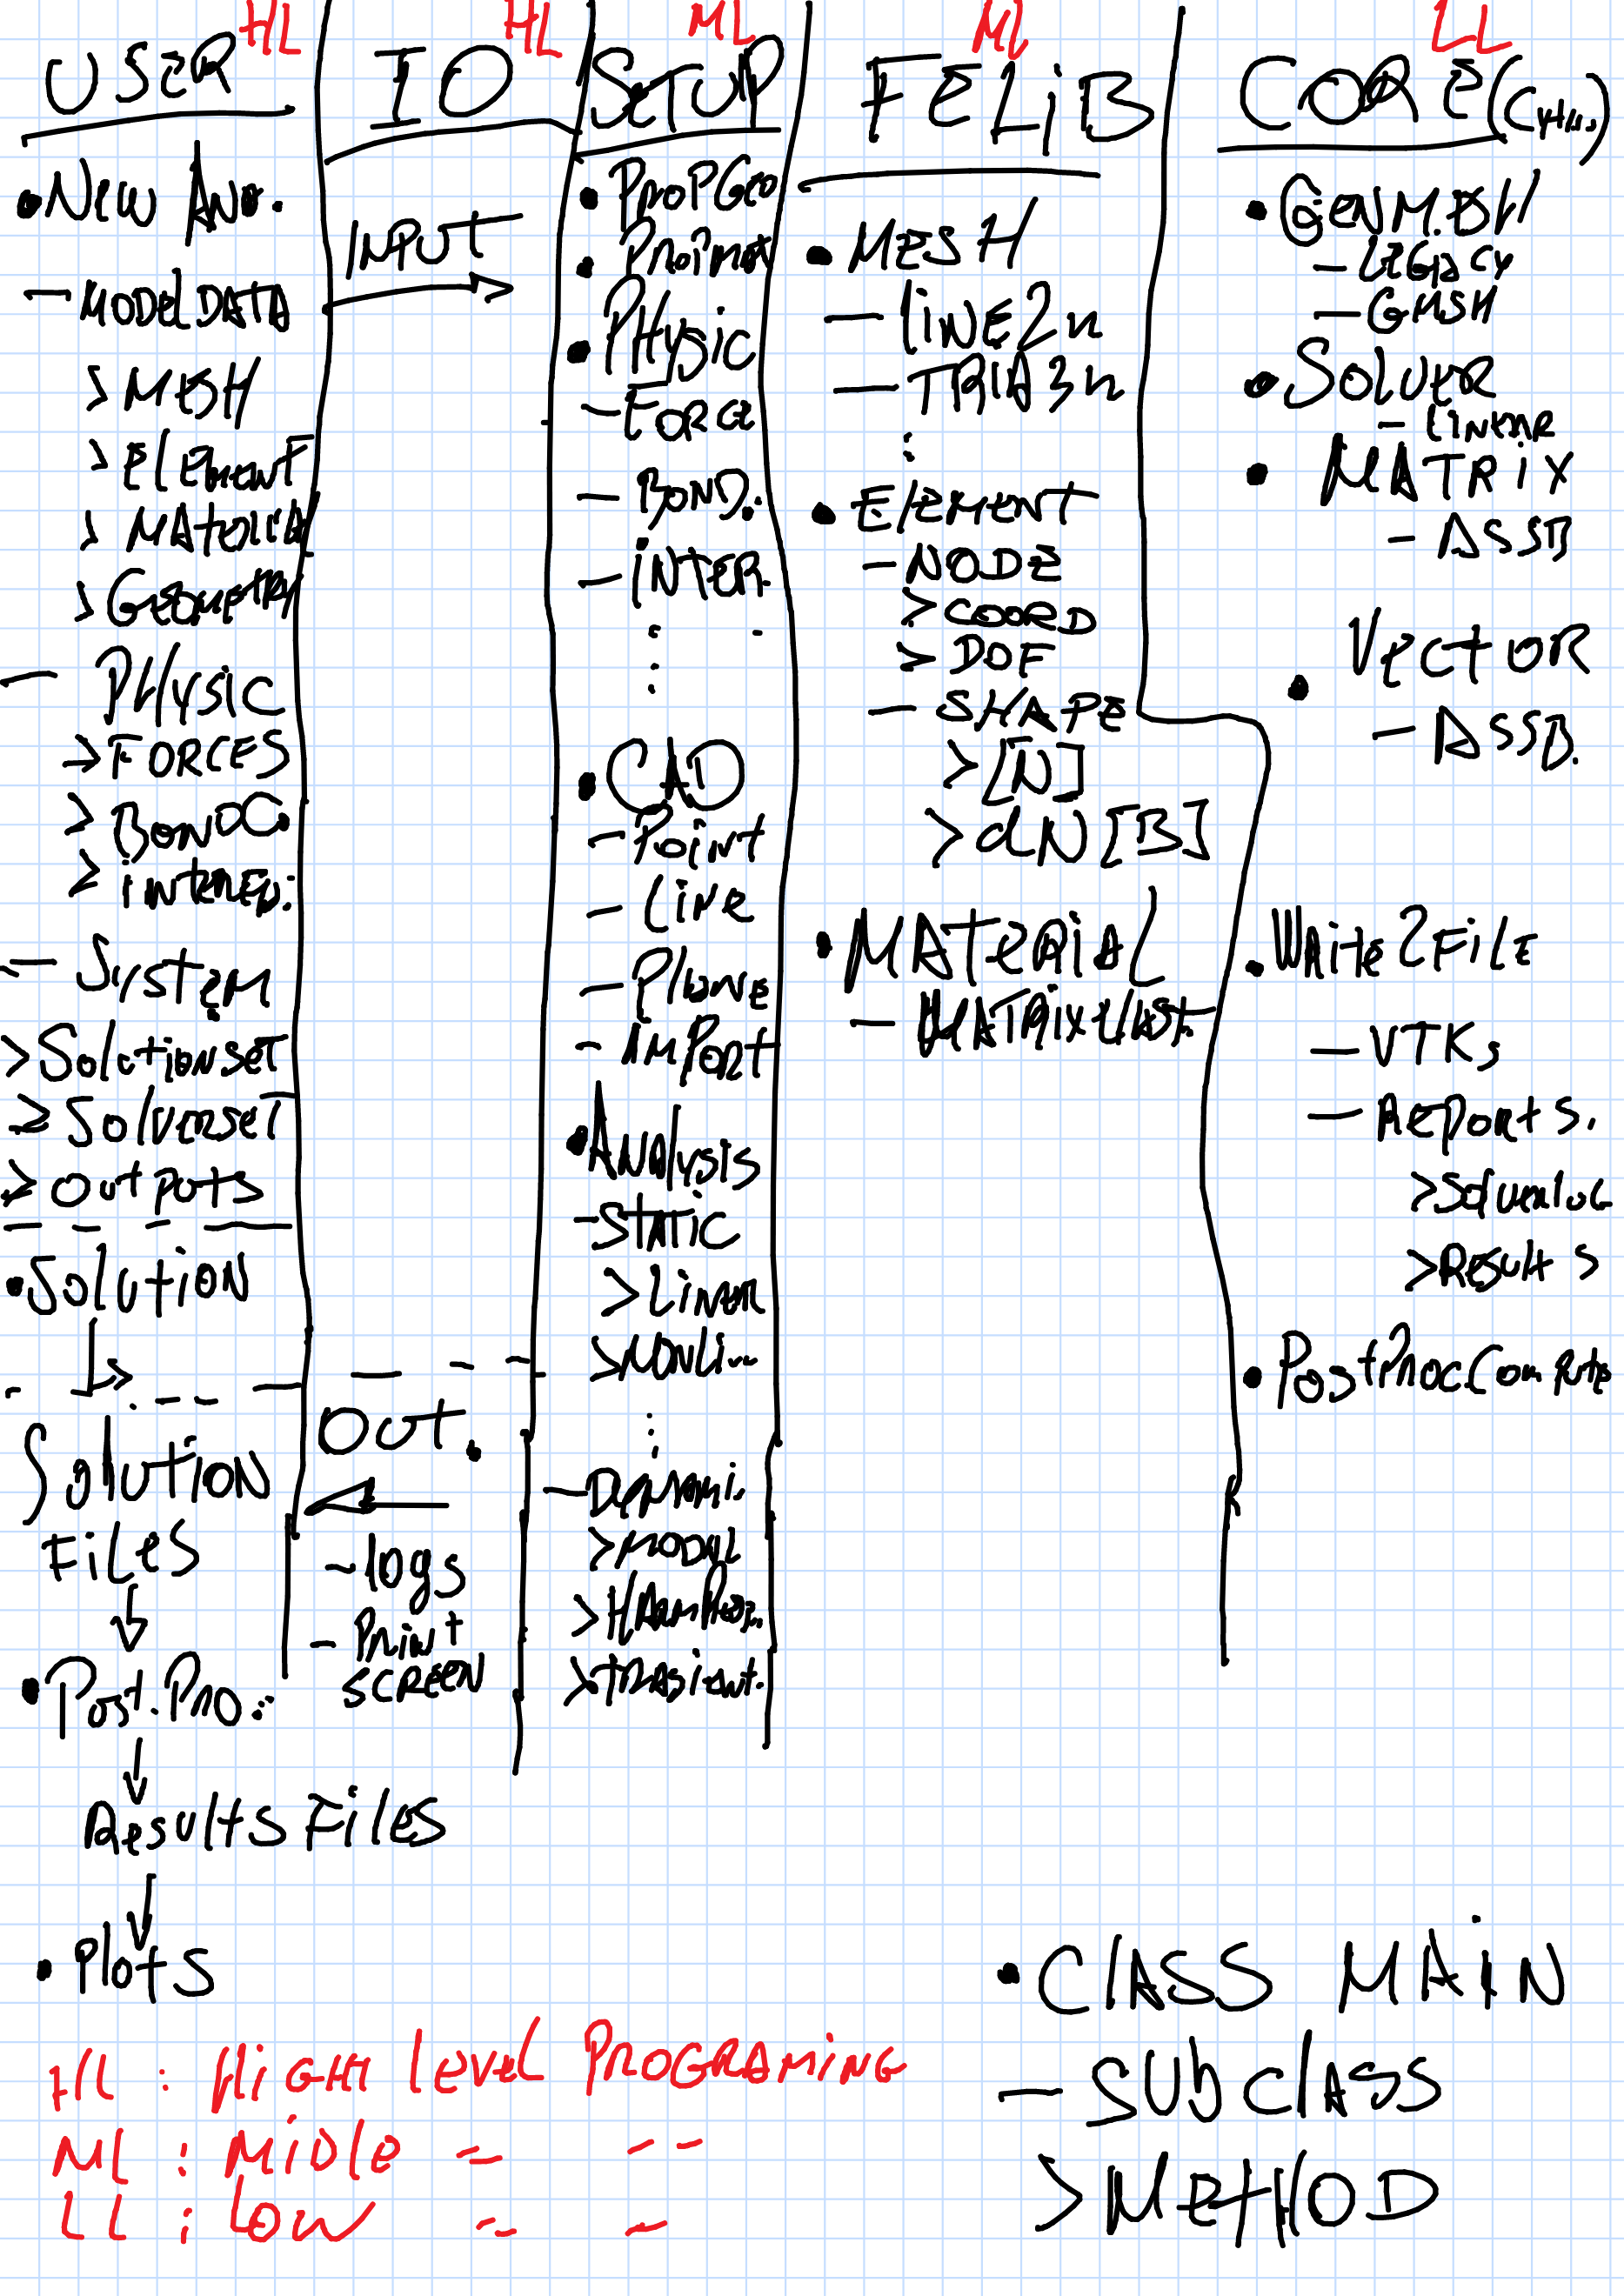 HL
USER
• New Ana.
- MODEL DATA
> MESH
> ElEment
> MAteriA
> GEOmetRy
- PHysic
> FORCES
> BONDC.
>
- System
> Solutionset
> Solverset
> Outputs
• Solution
Solution
Files
• Post.Pro...
Results Files
• Plots
HL
IO
INPUT
OUT.
- logs
- Print
SCREEN
ML
SeTUP
• PropGeo
• PropMat
• PHysic
- FORCE
- BOND.
- INTER.
• CAD
- Point
- Line
- Plane
- imPort
• Analysis
- STATIC
> Linear
> NONLi...
- Dynami.
> MODAL
>
> trasient.
ML
FELiB
• MESH
- liNE2n
- TRIA3n
• ElEMENT
- NODE
> COORD
> DOF
- SHAPE
> [N]
> dN[B]
• MATERiAL
- MATRix Elast.
LL
CORE (Cyth.)
• GENM.ESH
- LEGACY
- GMSH
• SOLVER
- Linear
• MATRiX
- ASSB
• VECTOR
- ASSB.
• Write2FilE
- VTKs
- Reports.
> Solverlog
> Results
• PostProc.Compute
• ClASS MAiN
- SUbClASS
> MetHOD
HL : HiGH level PROGRAMiNG
ML : MiDle = - -
LL : LOW = -